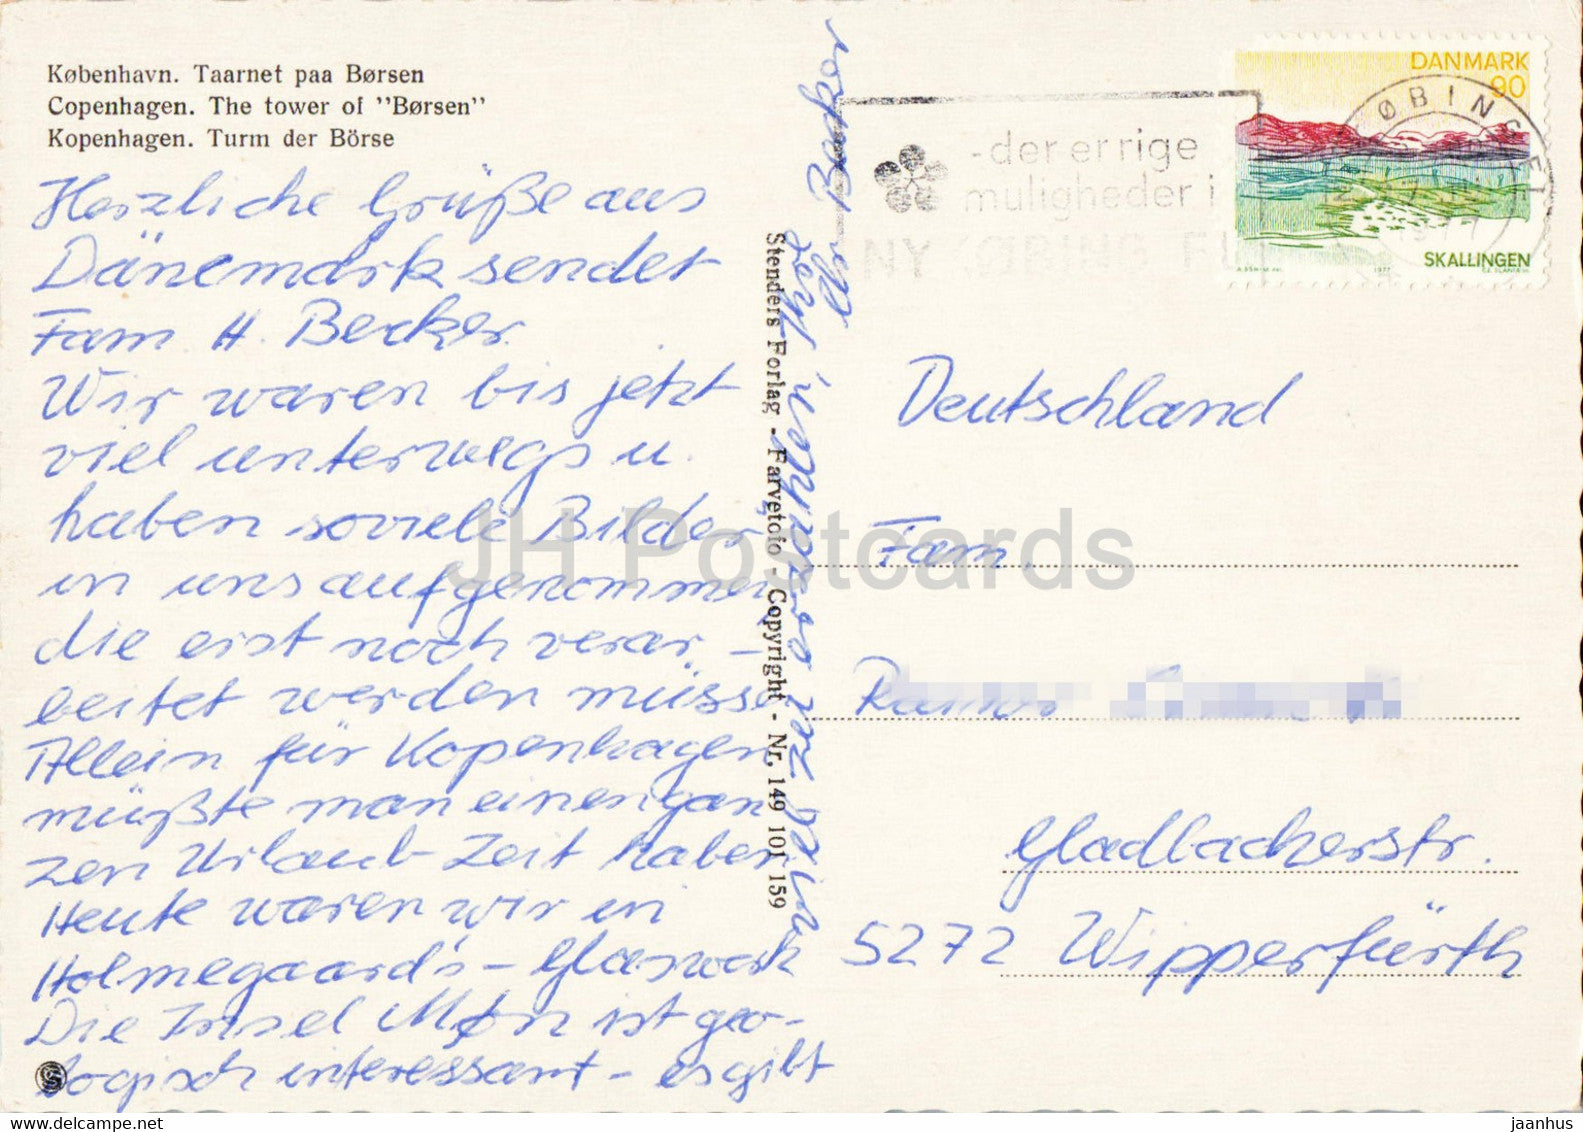 København. Taarnet paa Børsen
Copenhagen. The tower of "Børsen"
Kopenhagen. Turm der Börse
Herzliche Grüße aus
Dänemark sendet
Fam H. Becker.
Wir waren bis jetzt
viel unterwegs u.
haben soviele Bilder
in uns aufgenommen,
die erst noch verar-
beitet werden müsse
Allein für Kopenhagen
müßte man einen gan
zen Urlaub Zeit haben
Heute waren wir in
Holmegaard's - Glaswerk
Die Insel Møn ist geo-
logisch interessant - es gibt
viel zu
Becker
Stenders Forlag - Farvefoto - Copyright - Nr. 149 101 159
DANMARK
90
SKALLINGEN
1977
- der er rige
muligheder i
NYKØBING F
Deutschland
Fam.
Gladbacherstr.
5272 Wipperfürth
JH Postcards
www.delcampe.net
jaanhus